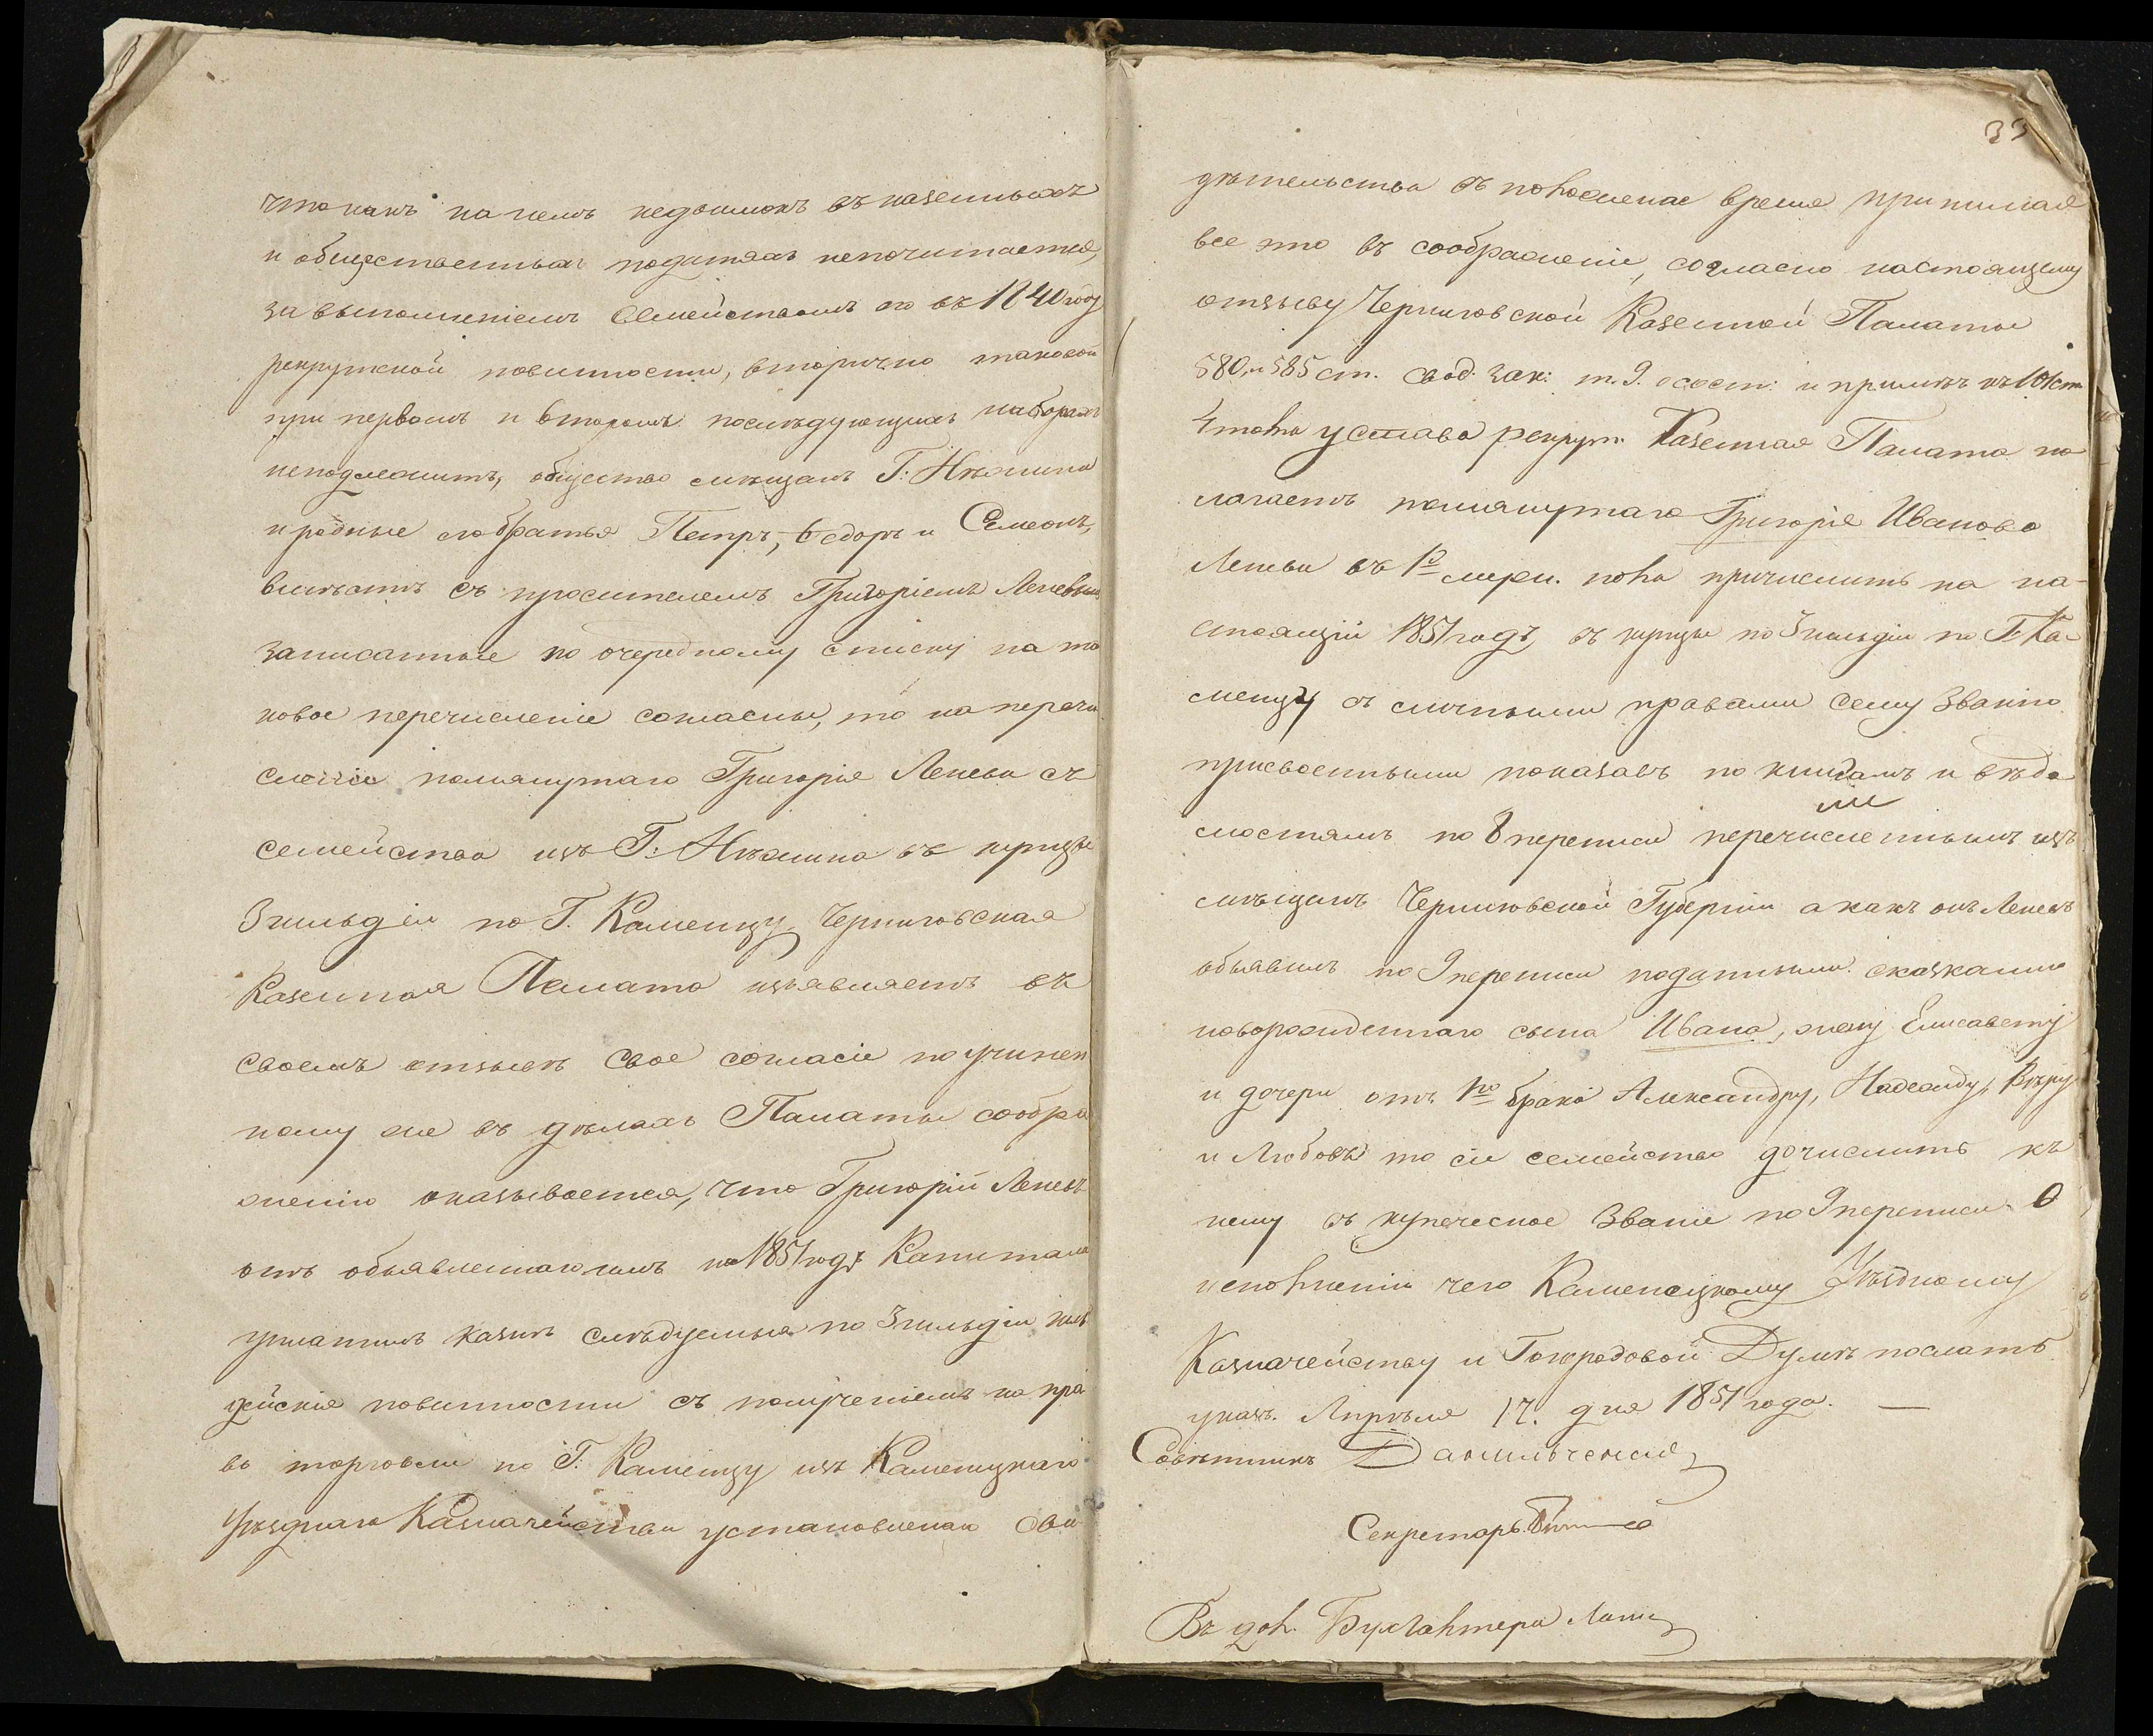 что какъ на немъ недоимокъ въ казенныхъ
и общественныхъ податяхъ непочитается,
за выполненіемъ Семействомъ его въ 1840 году
рекрутской повинности, вторично таковой
при первомъ и второмъ послѣдующихъ наборахъ
неподлежитъ, общество мѣщанъ Г: Нѣжина
и родные его братья Петръ, Ѳедоръ и Семеонъ,
вмѣстѣ съ просителемъ Григоріемъ Леневымъ
записанные по очередному списку на та
ковое перечисленіе согласны, то на перечи
сленіе помянутаго Григорія Ленева съ
семейства изъ Г: Нѣжина въ купцы
3 гильдіи по Г. Каменцу. Черниговская
Казенная Палата изъявляетъ въ
своемъ отзывѣ свое согласіе по учинен
ному же въ дѣлахъ Палаты сообра
женію оказывается, что Григорій Леневъ
отъ объявленнаго имъ на 1851 годъ Капитала
уплатилъ казнѣ слѣдуемыя по 3 гильдіи гиль
дейскія повинности съ полученіемъ на пра
во торговли по Г: Каменцу изъ Каменецкаго
Уѣзднаго Казначейства установленаго сви
33
дѣтельства въ положенное время принимая
все это въ соображеніе, согласно настоящему
отзыву Черниговской Казенной Палаты
580, и 585 ст. Свод. Зак: т. 9. о сост: и примѣч. къ 10 ст.
4 тома устава рекрут. Казенная Палата по
лагаетъ помянутаго Григорія Иванова
Ленева въ 1º муж. пола причислить на на-
стоящій 1851 годъ въ купцы по 3 гильдіи по Г. Ка-
менцу съ личными правами сему званію
присвоенными показавъ по книгамъ и вѣдо
мостямъ по 8 переписи перечисленнымъ изъ
мѣщанъ Черниговской Губерніи а какъ онъ Леневъ
объявилъ по 9 переписи поданными сказками
новорожденнаго сына Ивана, жену Елисавету
и дочери отъ 1го брака Александру, Надежду, Вѣру
и Любовь то сіе семейство дочислить къ
нему въ купеческое званіе по 9 переписи. О
исполненіи чего Каменецкому Уѣздному
Казначейству и Городовой Думѣ послать
указъ. Апрѣля 17. дня 1851 года. —
Совѣтникъ
Секретарь
Въ дол. Бухгалтера